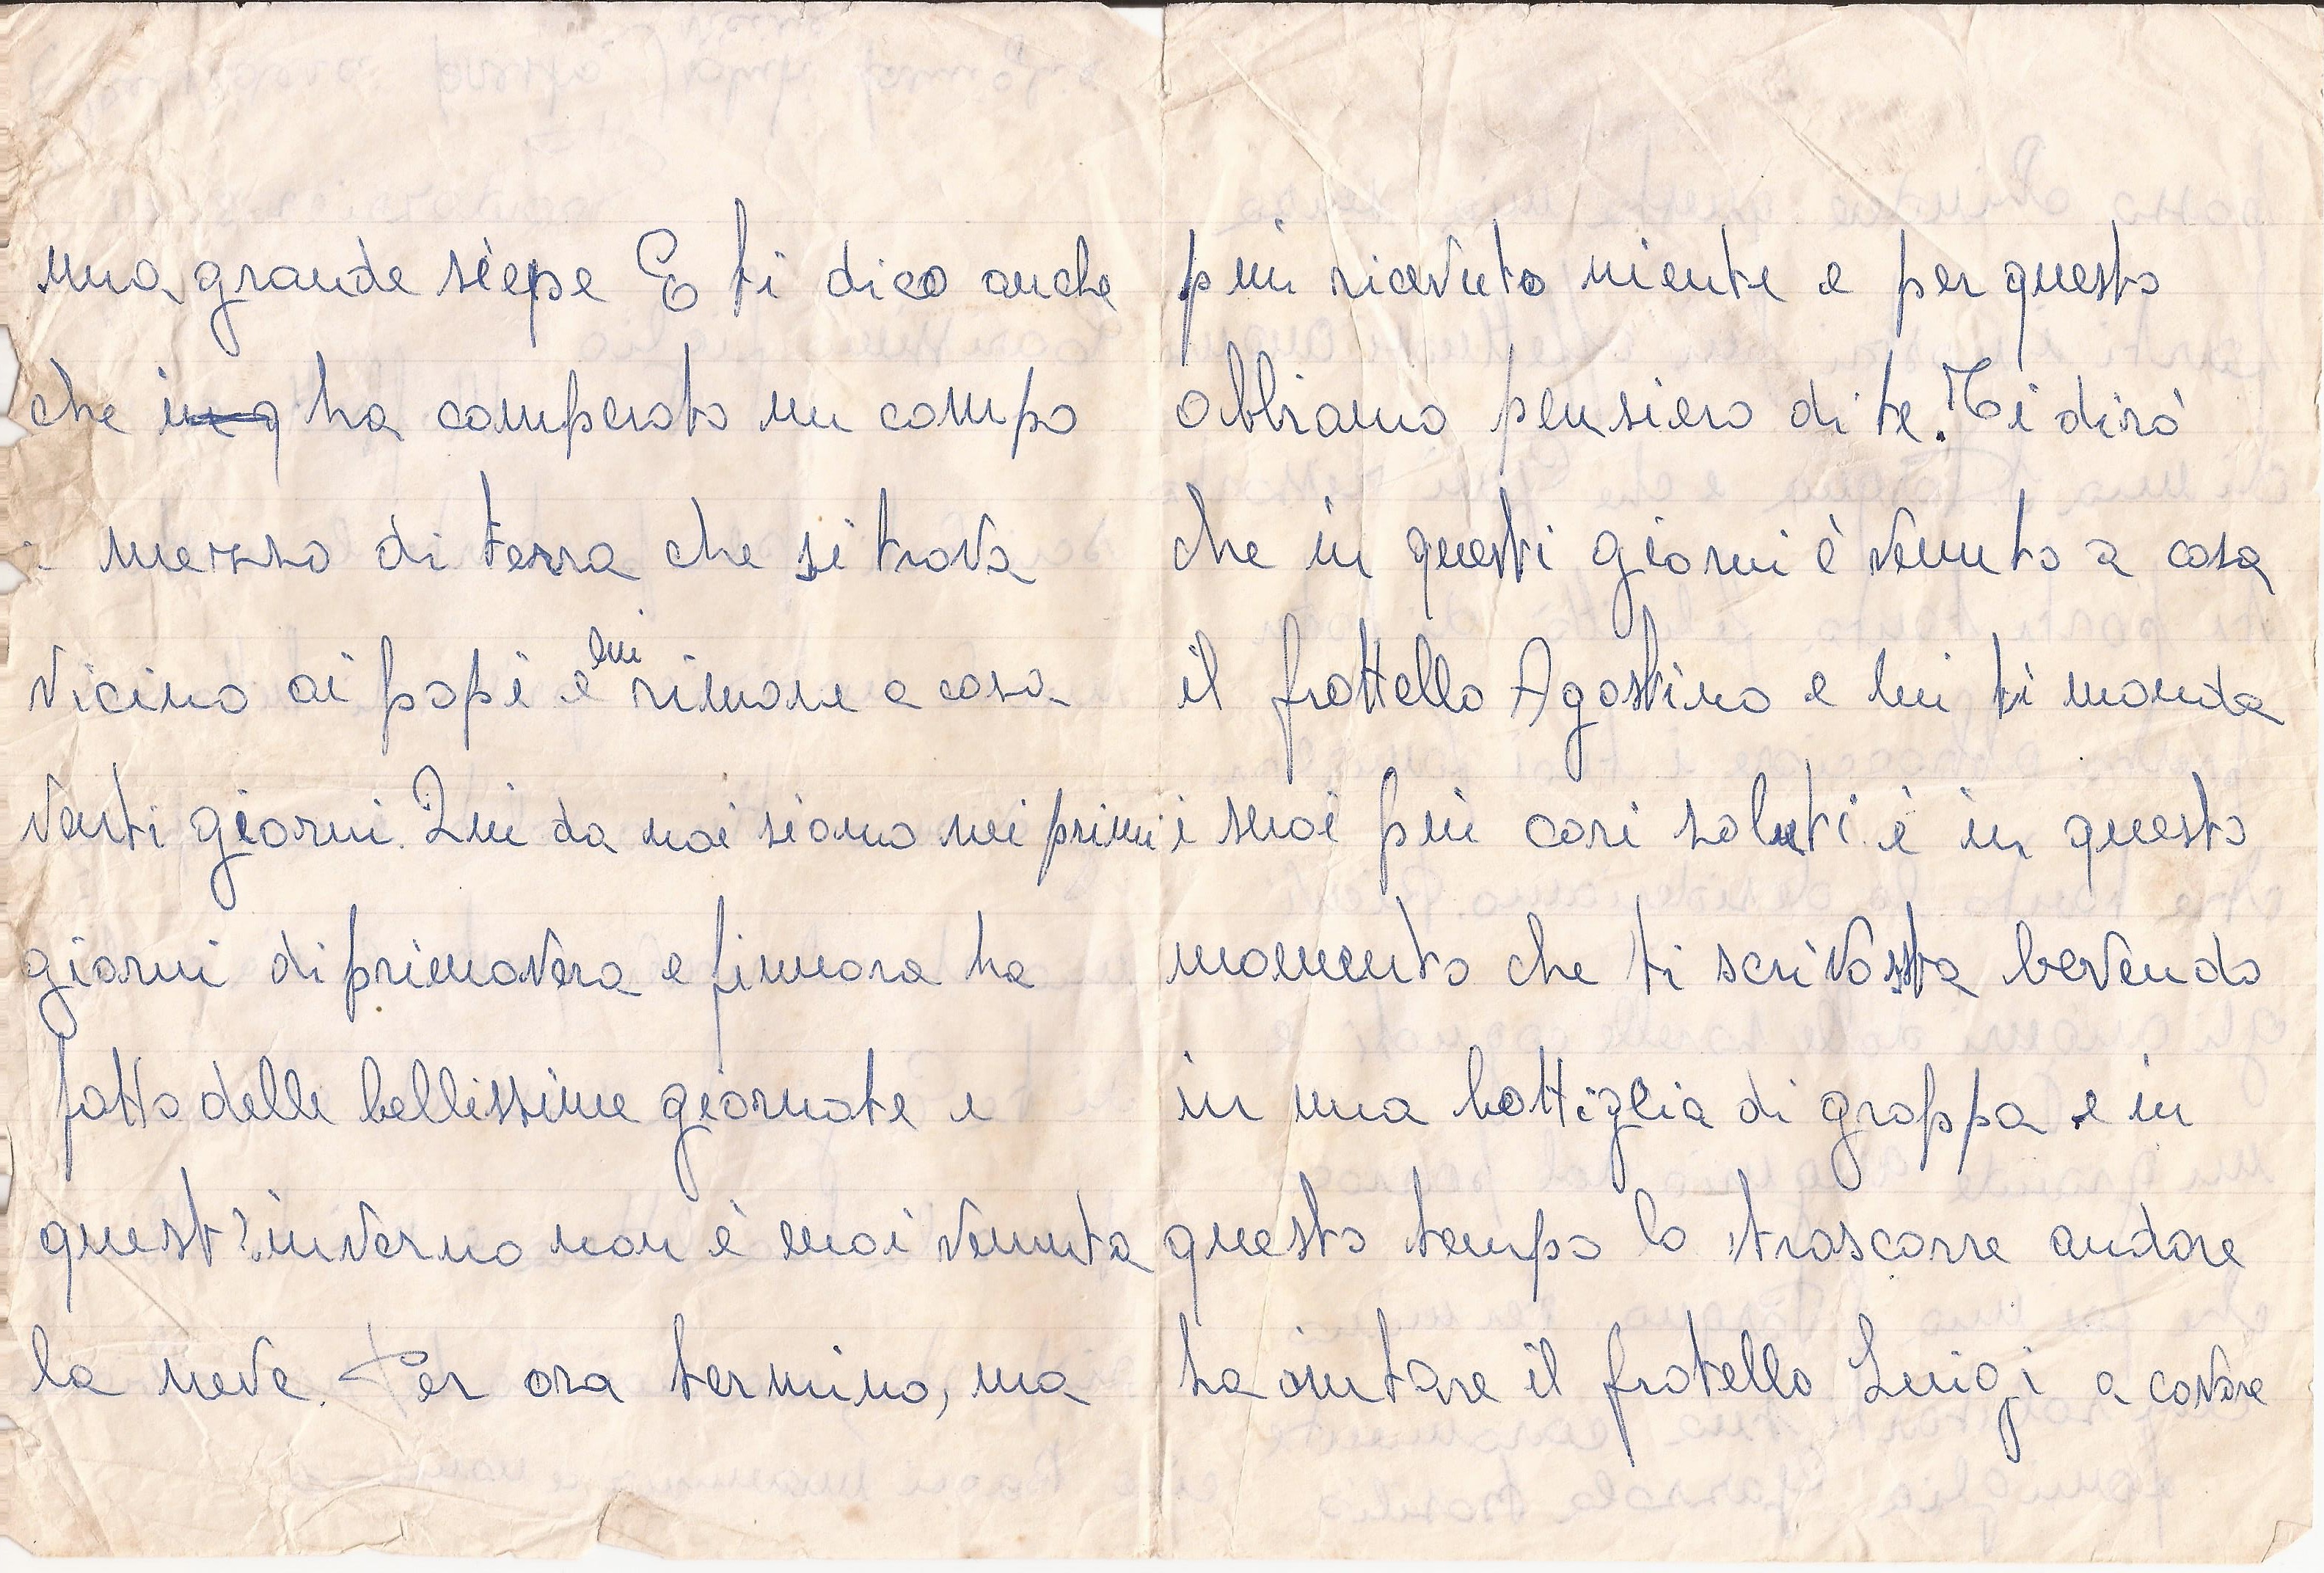 una grande siepe E ti dico anche
che ha comperato un campo
mezzo di terra che si trova
vicino ai papi e lui rimane a casa
venti giorni. Qui da noi siamo nei primi
giorni di primavera e finnora ha
fatto delle bellissime giornate e
quest'inverno non è mai venuta
la neve. Per ora termino, ma
più ricevuto niente e per questo
abbiamo pensiero di te. Ti dirò
che in questi giorni è venuto a casa
il frattello Agostino e lui ti manda
i suoi più cari saluti è in questo
momento che ti scrivo sta bevendo
in una bottiglia di grappa e in
questo tempo lo trascorre andare
ha aiutare il fratello Luigi a cavare